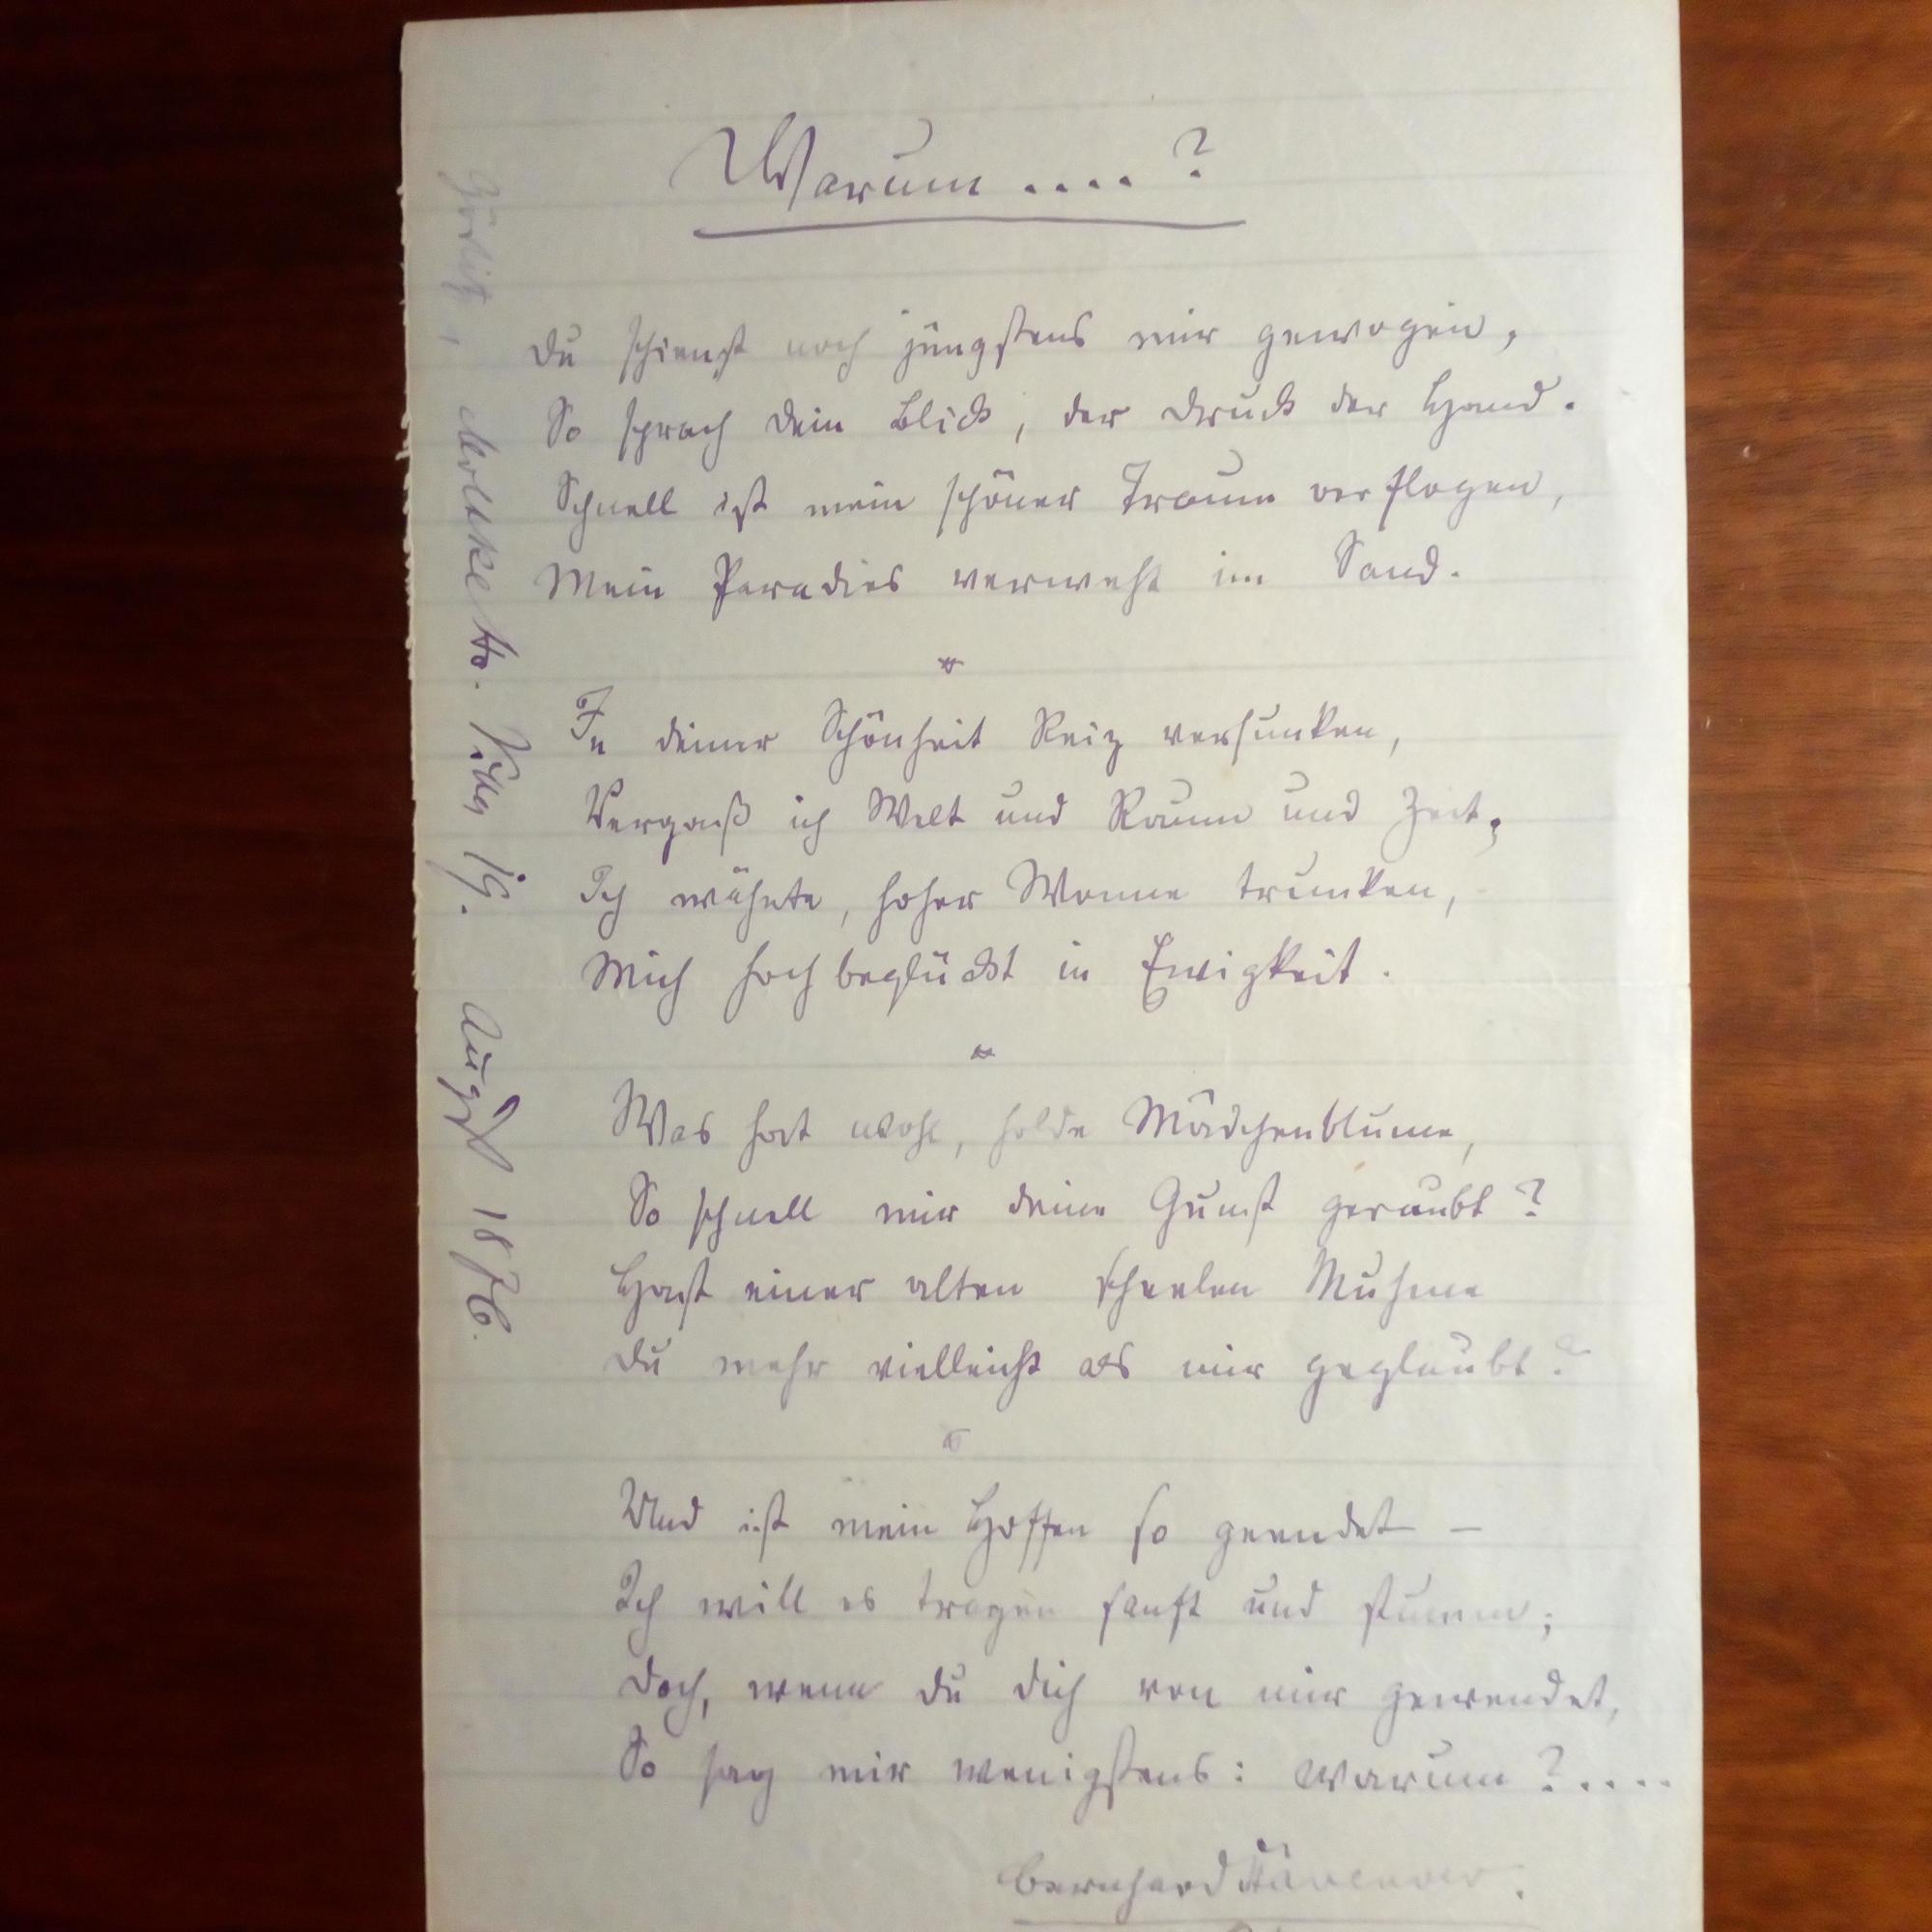 Warum ....?
Du schienst noch jüngstens mir gewogen,
So sprach dein Blick, der Druck der Hand.
Schnell ist mein schöner Traum verflogen,
Mein Paradies verweht im Sand.
*
In deiner Schönheit Reiz versunken,
Vergaß ich Welt und Raum und Zeit;
Ich wähnte, hoher Wonne trunken,
Mich hochbeglückt in Ewigkeit.
*
Was hat wohl, holde Mädchenblume,
So schnell mir deine Gunst geraubt?
Hast einer alten scheelen Muhme
Du mehr vielleicht als mir geglaubt?
*
Und ist mein Hoffen so geendet —
Ich will es tragen sanft und stumm;
Doch, wenn du dich von mir gewendet,
So sag mir wenigstens: Warum?....
Bernhard
Görlitz, Moltkestr. 19. August 1876.